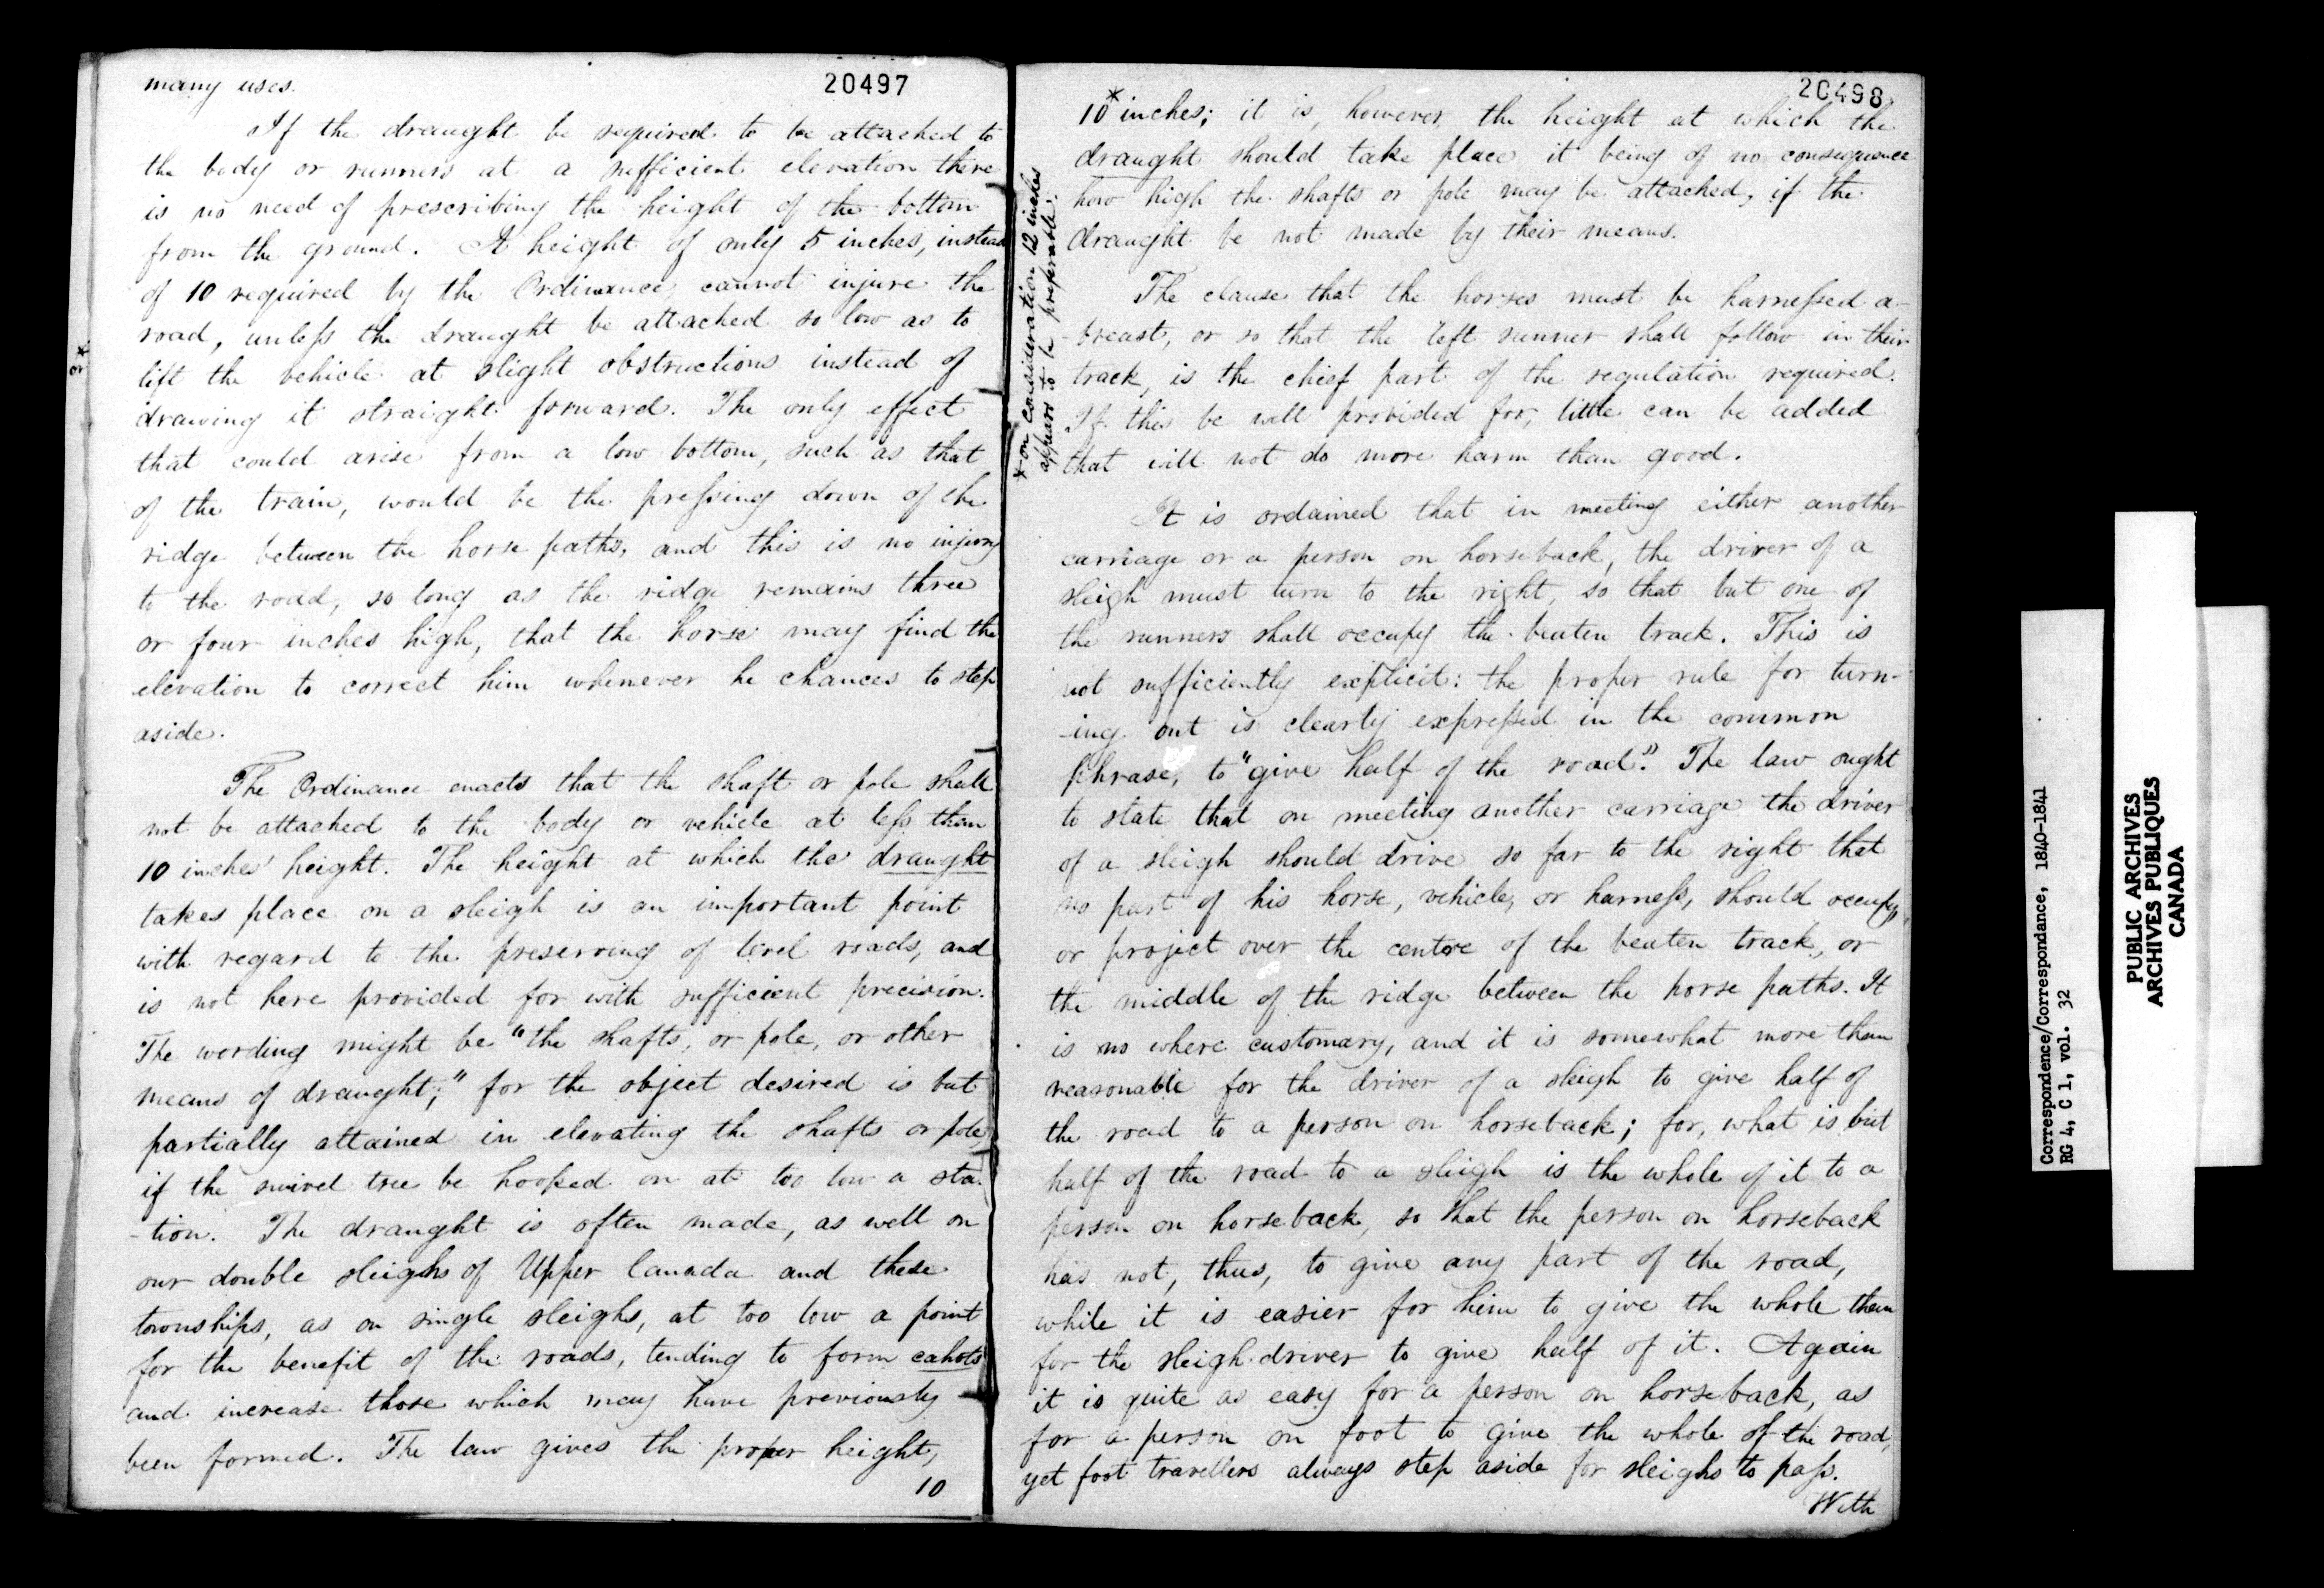 20497
many uses.
If the draught be required to be attached to
the body or runners at a sufficient elevation there
is no need of prescribing the height of the bottom
from the ground. A height of only 5 inches, instead
of 10 required by the Ordinance, cannot injure the
road, unless the draught be attached so low as to
lift the vehicle at slight obstructions instead of
drawing it straight forward. The only effect
that could arise from a low bottom, such as that
of the train, would be the pressing down of the
ridge between the horse paths, and this is no injury
to the road, so long as the ridge remains three
or four inches high, that the horse may find the
elevation to correct him whenever he chances to step
aside.
The Ordinance enacts that the shaft or pole shall
not be attached to the body or vehicle at less than
10 inches' height. The height at which the draught
takes place on a sleigh is an important point
with regard to the preserving of level roads, and
is not here provided for with sufficient precision.
The wording might be "the shafts, or pole, or other
means of draught;" for the object desired is but
partially attained in elevating the shafts or pole,
if the swivel tree be hooked on at too low a sta-
-tion. The draught is often made, as well on
our double sleighs of Upper Canada and these
townships, as on single sleighs, at too low a point
for the benefit of the roads, tending to form cahots
and increase those which may have previously
been formed. The law gives the proper height,
10
20498
10* inches; it is, however, the height at which the
draught should take place, it being of no consequence
how high the shafts or pole may be attached, if the
draught be not made by their means.
* on consideration 12 inches
appears to be preferable.
The clause that the horses must be harnessed a-
-breast, or so that the left runner shall follow in their
track, is the chief part of the regulation required.
If this be well provided for, little can be added
that will not do more harm than good.
It is ordained that in meeting either another
carriage or a person on horseback, the driver of a
sleigh must turn to the right, so that but one of
the runners shall occupy the beaten track. This is
not sufficiently explicit: the proper rule for turn-
-ing out is clearly expressed in the common
phrase, to "give half of the road." The law ought
to state that on meeting another carriage the driver
of a sleigh should drive so far to the right that
no part of his horse, vehicle, or harness, should occupy,
or project over the centre of the beaten track, or
the middle of the ridge between the horse paths. It
is no where customary, and it is somewhat more than
reasonable for the driver of a sleigh to give half of
the road to a person on horseback; for, what is but
half of the road to a sleigh is the whole of it to a
person on horseback, so that the person on horseback
has not, thus, to give any part of the road,
while it is easier for him to give the whole than
for the sleigh-driver to give half of it. Again
it is quite as easy for a person on horseback, as
for a person on foot to give the whole of the road,
yet foot travellers always step aside for sleighs to pass.
With
Correspondence/Correspondance, 1840-1841
RG 4, C 1, vol. 32
PUBLIC ARCHIVES
ARCHIVES PUBLIQUES
CANADA